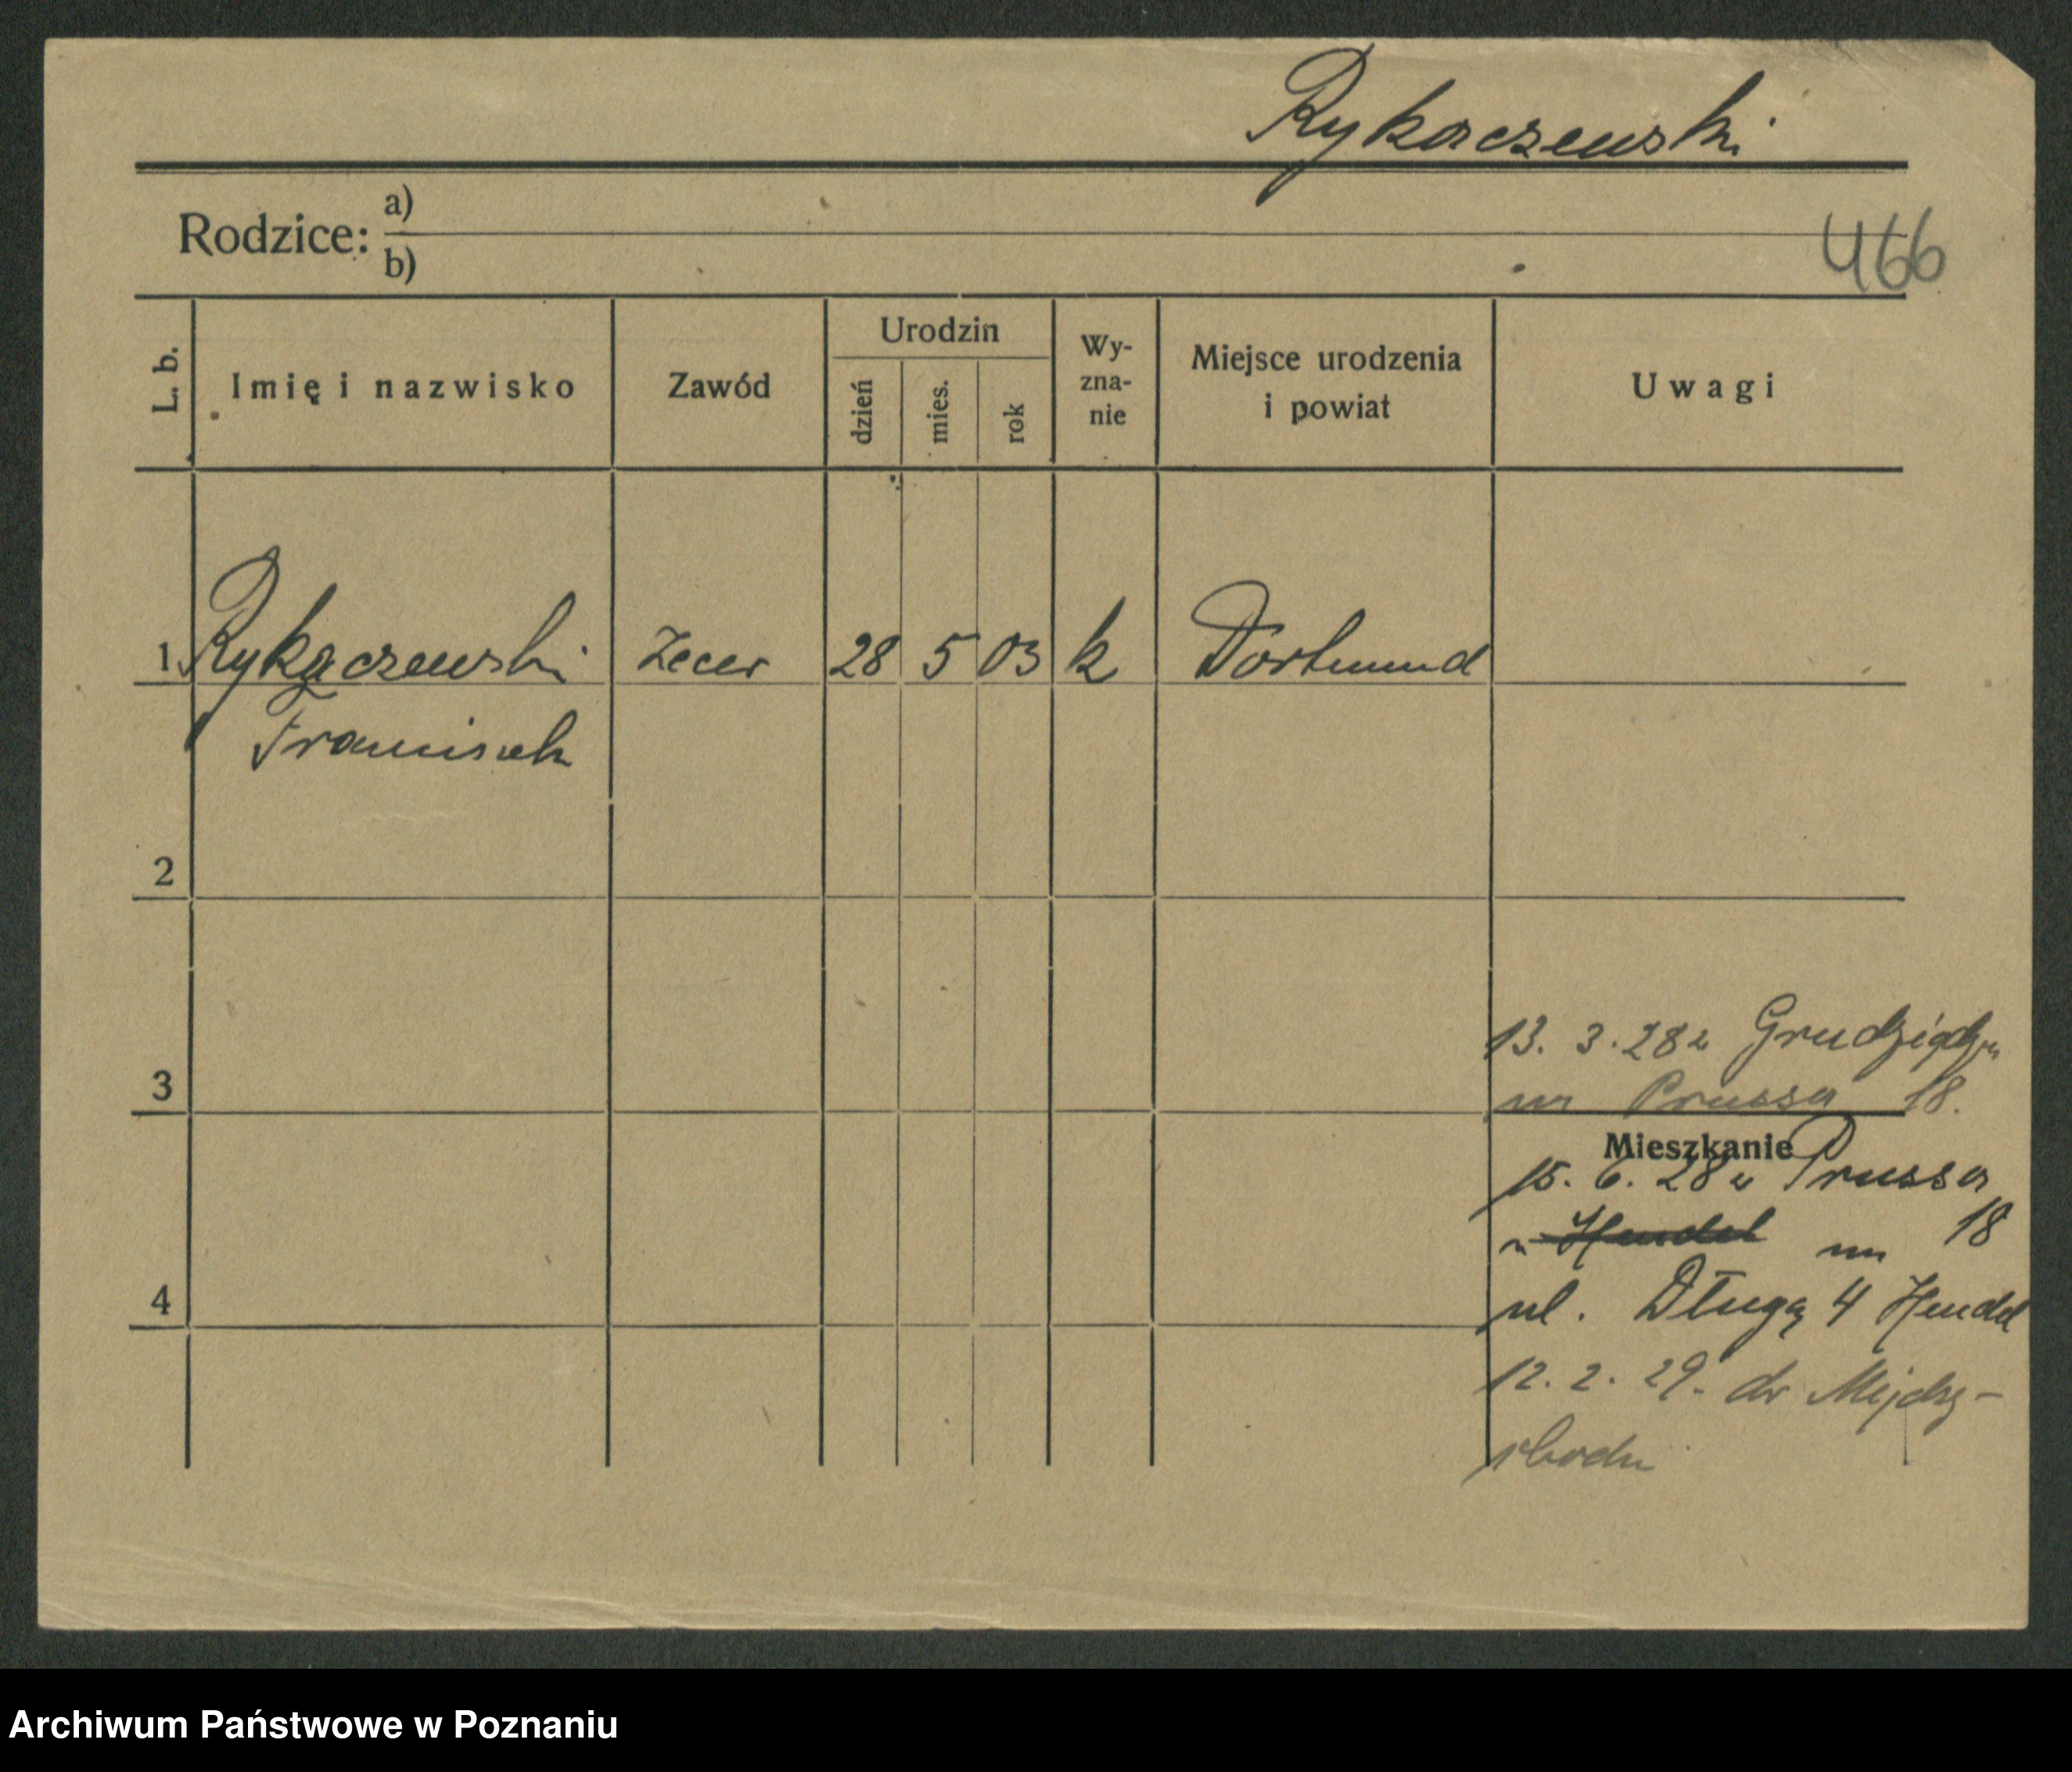 Rykaczewski
Rodzice: a)
b)
466
L. b.
Imię i nazwisko
Zawód
Urodzin
dzień
mies.
rok
Wy-
zna-
nie
Miejsce urodzenia
i powiat
Uwagi
1 Rykączewski Zecer 28 5 03 k Dortmund
Franciszek
2
3
13. 3. 28 z Grudziądza
na Prussa 18.
Mieszkanie
15. 6. 28 z Prussa
18
4
ul. Długą 4 Hendel
12. 2. 29. do Między-
chodu
Archiwum Państwowe w Poznaniu